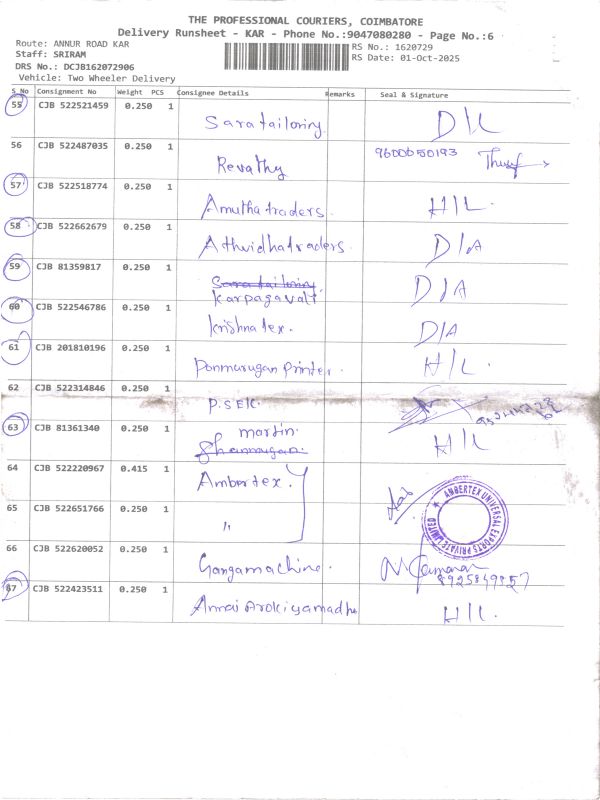 THE PROFESSIONAL COURIERS, COIMBATORE
Delivery Runsheet - KAR - Phone No.:9047080280 - Page No.:6
Route: ANNUR ROAD KAR
RS No.: 1620729
Staff: SRIRAM
RS Date: 01-Oct-2025
DRS No.: DCJB162072906
Vehicle: Two Wheeler Delivery
S No Consignment No Weight PCS Consignee Details Remarks Seal & Signature
55 CJB 522521459 0.250 1
Sara tailoring D/L
56 CJB 522487035 0.250 1
Revathy 9600650193
57 CJB 522518774 0.250 1
Amutha traders. H/L.
58 CJB 522662679 0.250 1
Athvidha traders. D/A
59 CJB 81359817 0.250 1
Sara tailoring
Karpagavalli D/A
60 CJB 522546786 0.250 1
Krishna tex. D/A
61 CJB 201810196 0.250 1
Ponmurugan Printer. H/L.
62 CJB 522314846 0.250 1
P.SEK.
63 CJB 81361340 0.250 1
martin.
Shanmugan. H/L
64 CJB 522220967 0.415 1
Ambertex.
65 CJB 522651766 0.250 1
"
AMBERTEX UNIVERSAL EXPORTS PRIVATE LIMITED
66 CJB 522620052 0.250 1
Ganga machine. 8925849857
67 CJB 522423511 0.250 1
Annai Arokiyamadha H/L.